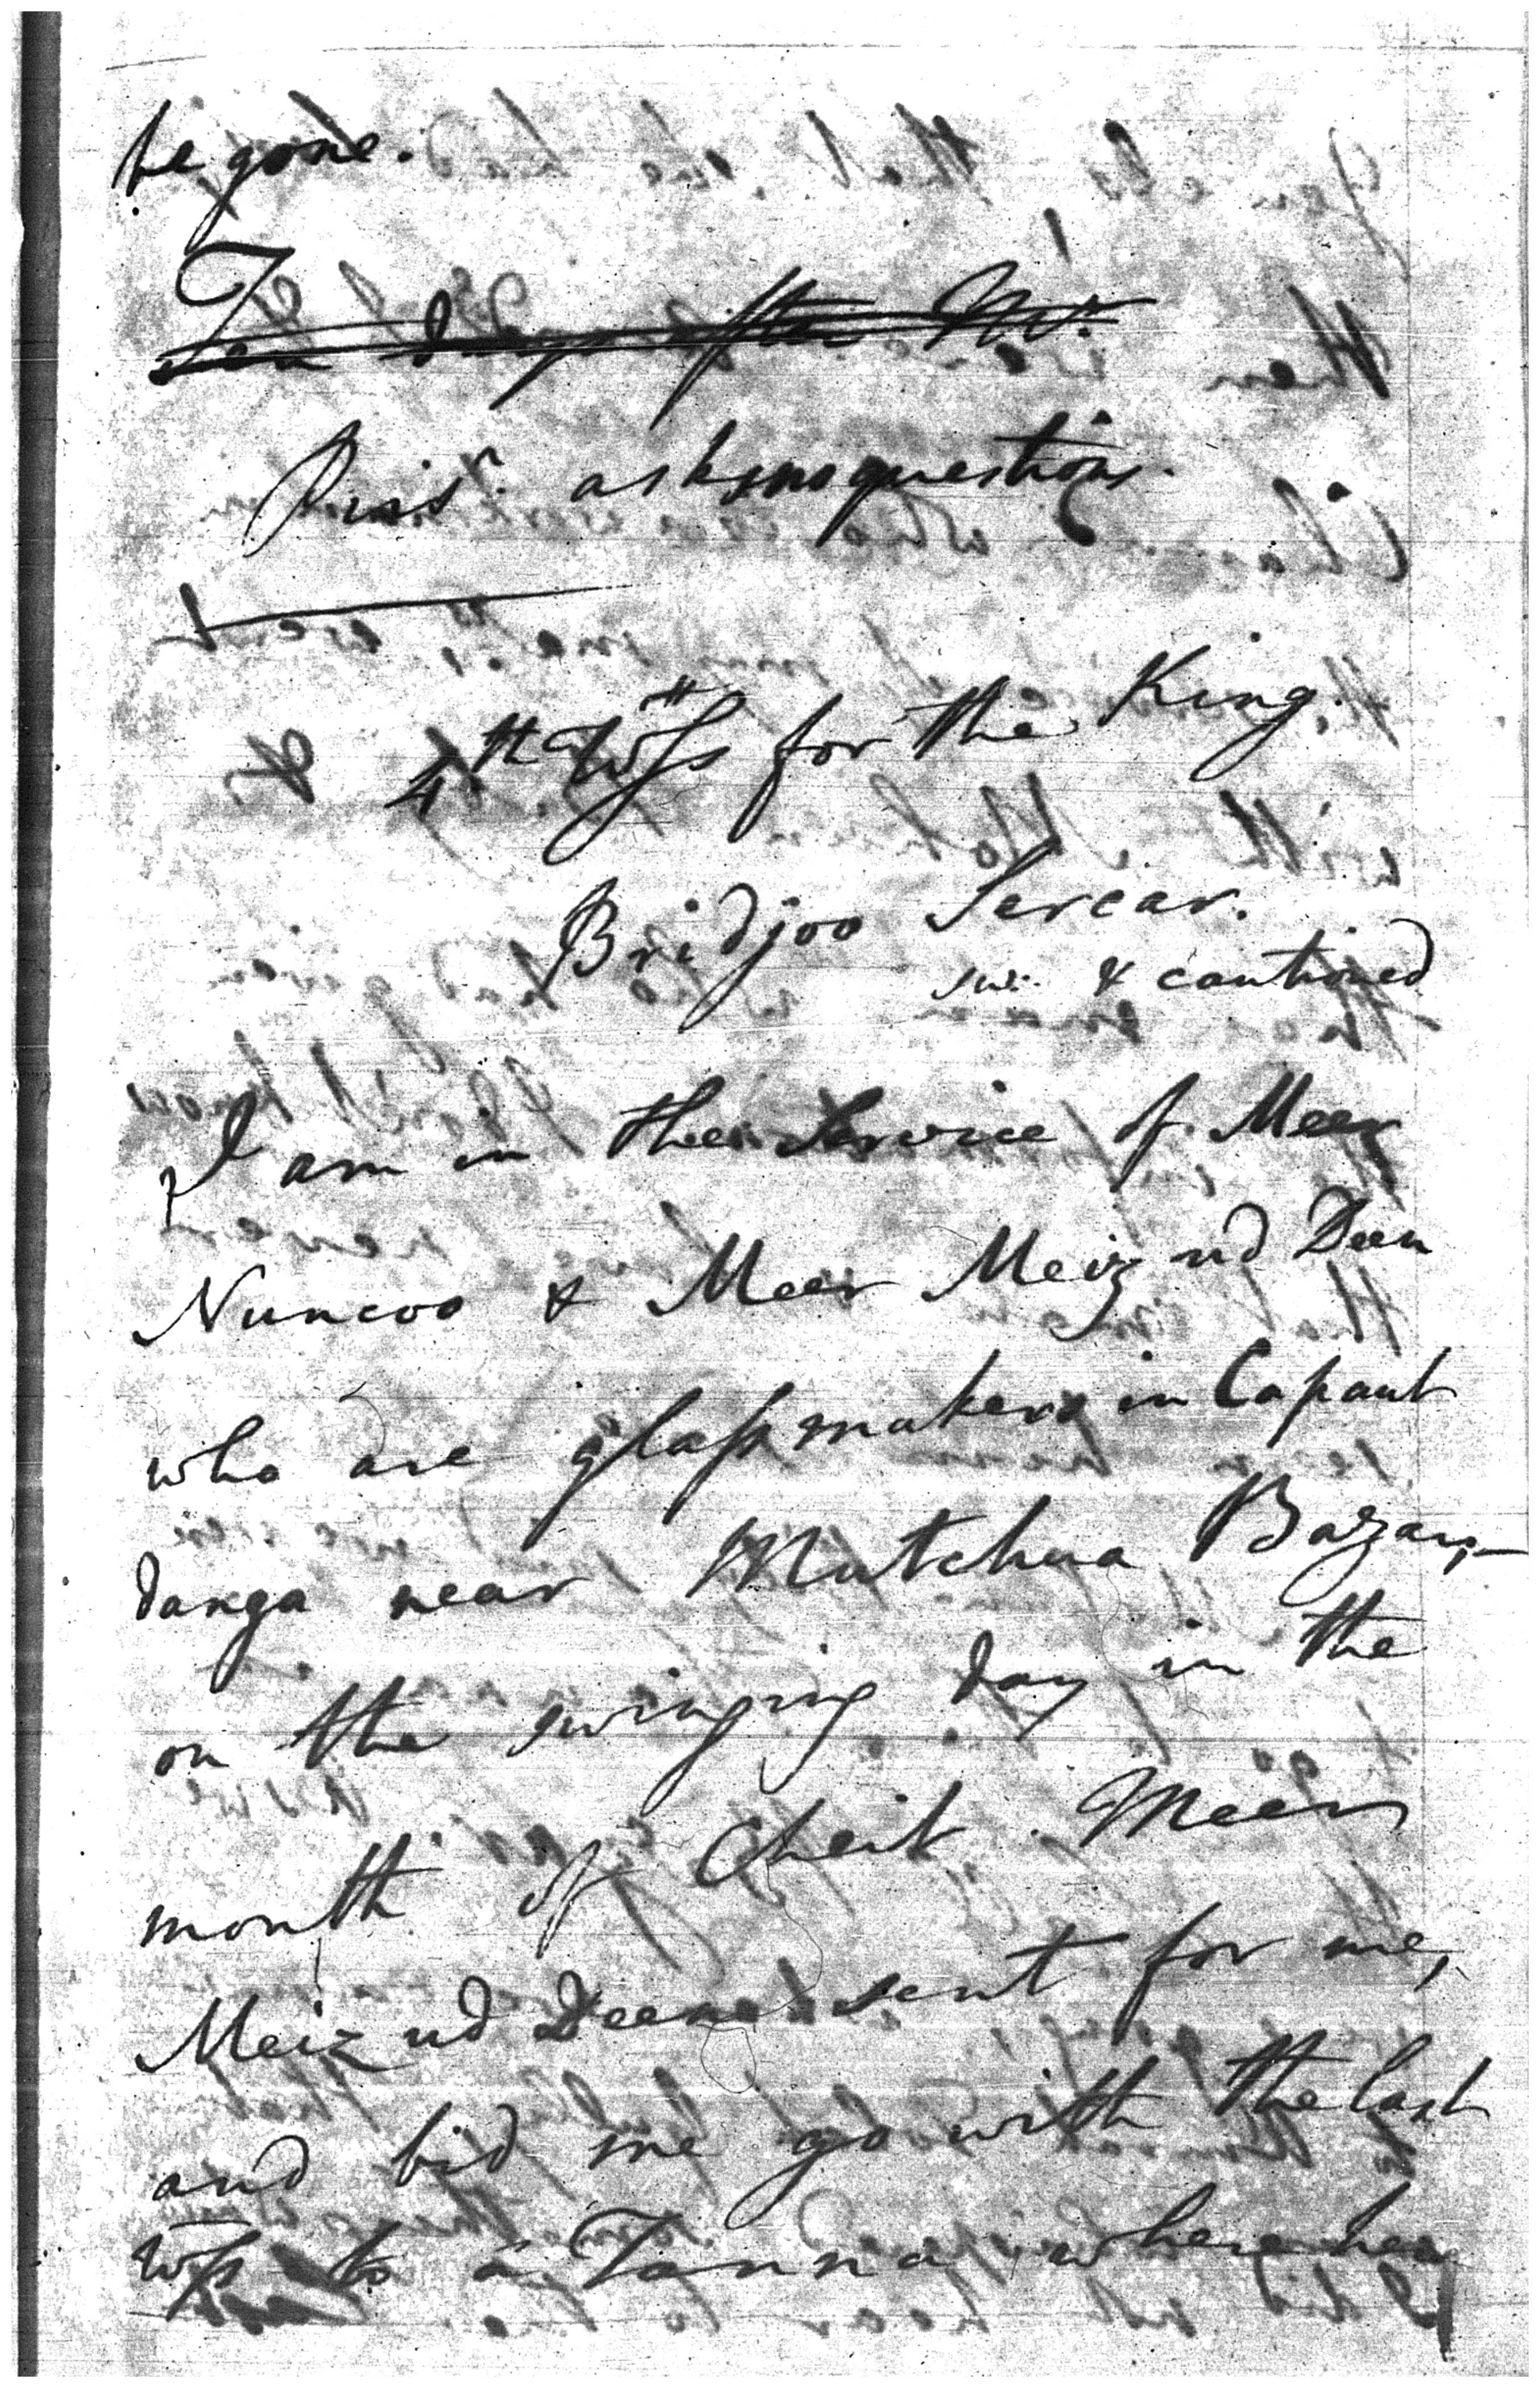 be gone.
Ten days after Mr.
Prisr. asks no questions.
4th Wss for the King.
Bridjoo Sercar.
sw: & cautioned
I am in the Service of Meer
Nuncoo & Meer Meiz ud Deen
who are glassmakers in Capaut
danga near Mutchua Bazar,
on the swinging day in the
month of Cheit Meer
Meiz ud Deen sent for me,
and bid me go with the last
Wss to a Tanna where he